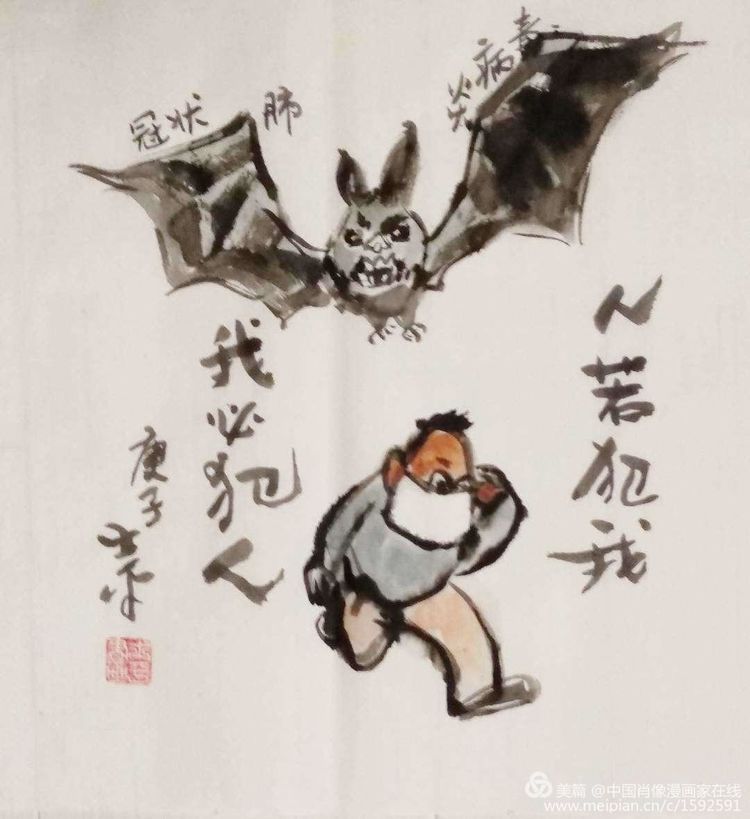 冠状 肺 炎病毒
人若犯我
我必犯人
庚子
美篇 @中国肖像漫画家在线
www.meipian.cn/c/1592591